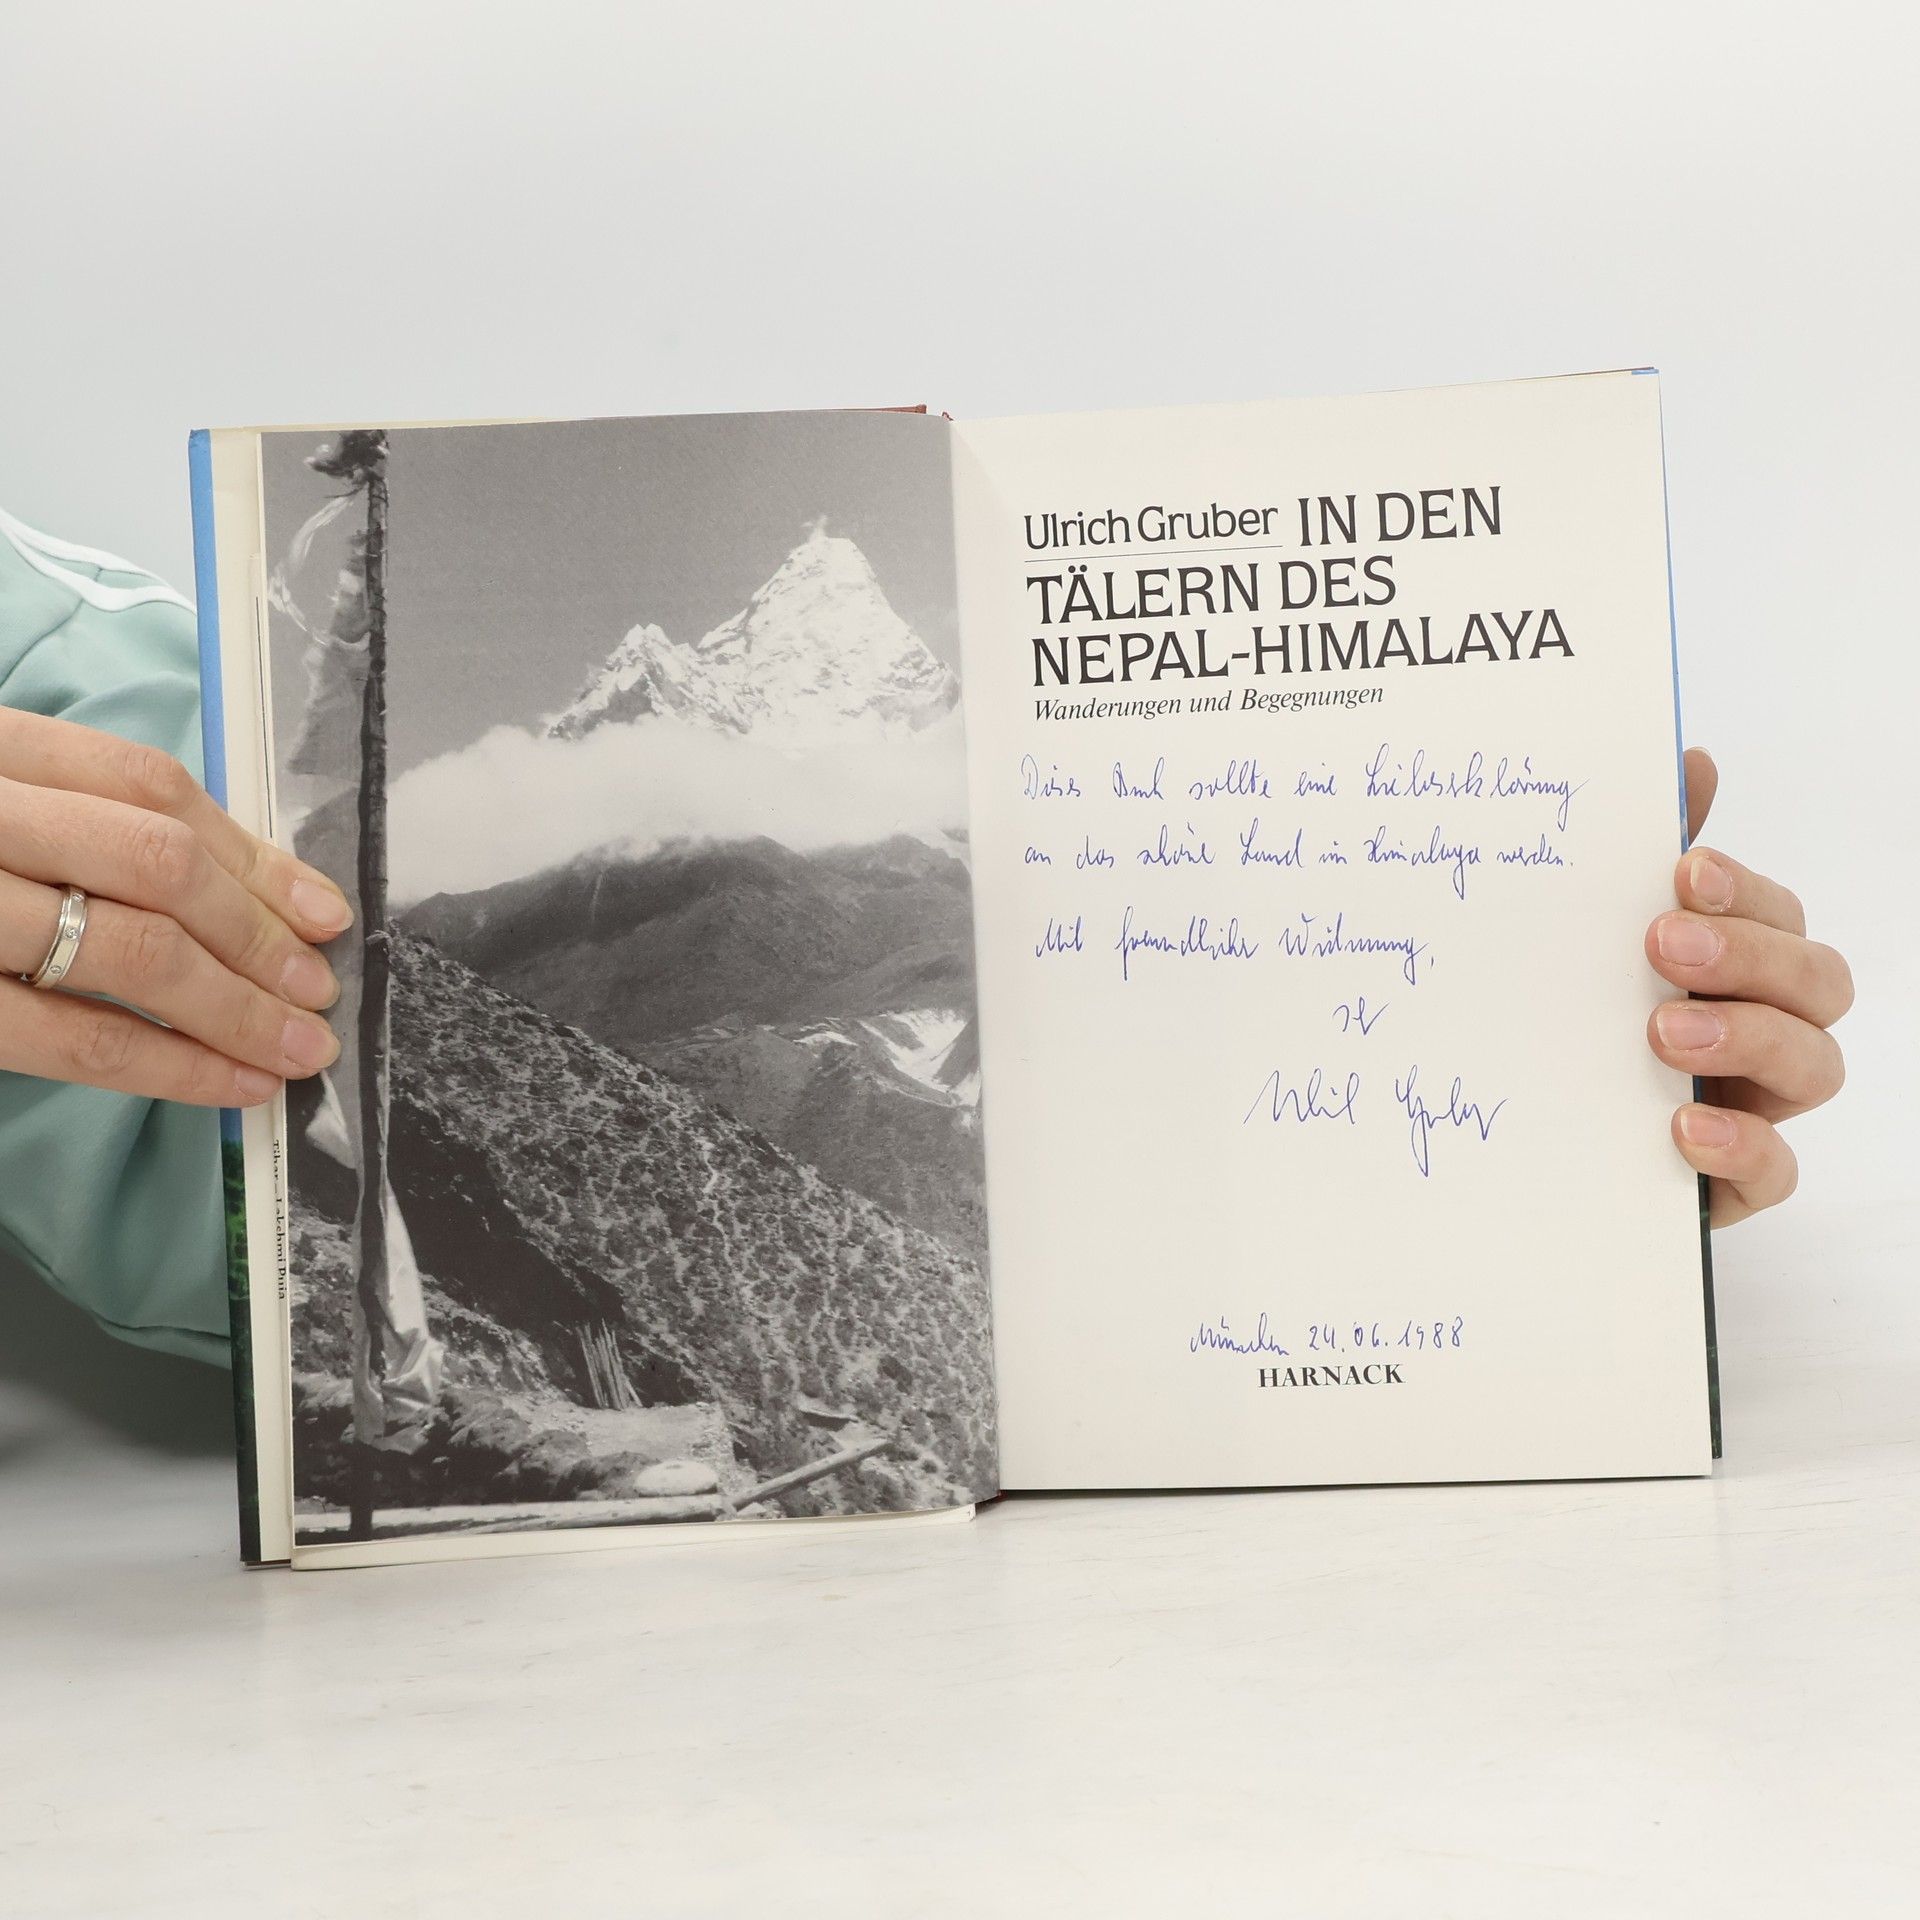 Tihar – Lakshmi Puja
Ulrich Gruber IN DEN
TÄLERN DES
NEPAL-HIMALAYA
Wanderungen und Begegnungen
Dieses Buch sollte eine Liebeserklärung
an das schöne Land im Himalaya werden.
Mit freundlicher Widmung,
Ulrich Gruber
München 24.06.1988
HARNACK